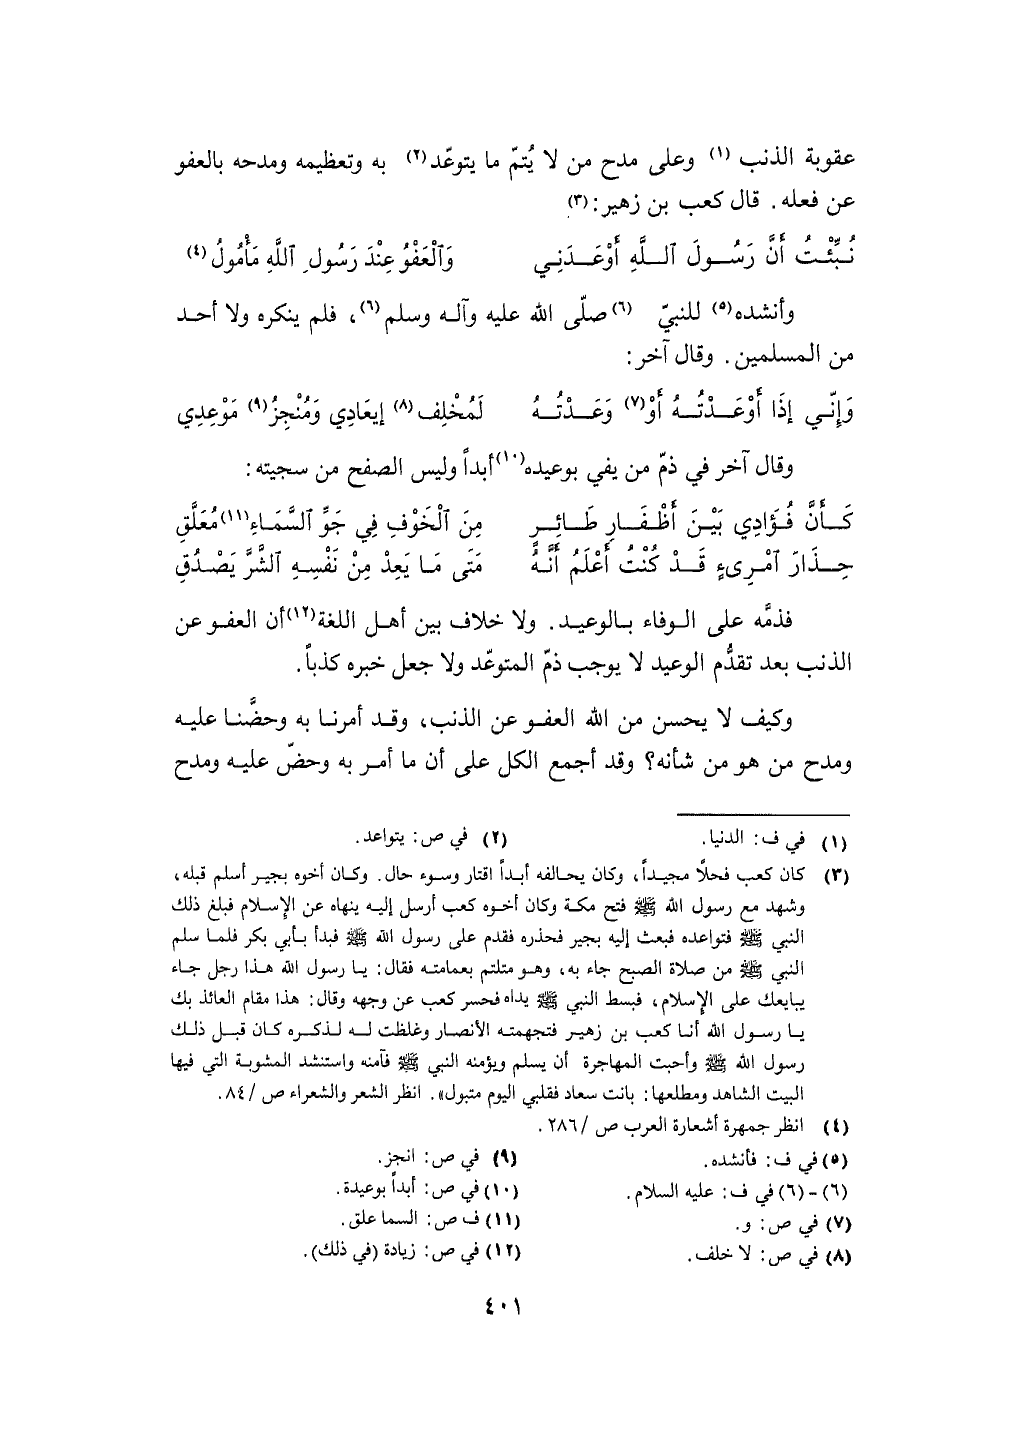 عقوبة الذنب (١) وعلى مدح من لا يُتمّ ما يتوعّد(٢) به وتعظيمه ومدحه بالعفو
عن فعله. قال كعب بن زهير:(٣)
نُبِّئْتُ أَنَّ رَسُولَ ٱللَّهِ أَوْعَدَنِي وَٱلْعَفْوُ عِنْدَ رَسُولِ ٱللَّهِ مَأْمُولُ(٤)
وأنشده(٥) للنبيّ (٦)صلّى الله عليه وآله وسلم(٦)، فلم ينكره ولا أحد
من المسلمين. وقال آخر:
وَإِنّي إِذَا أَوْعَدْتُهُ أَوْ(٧) وَعَدْتُهُ لَمُخْلِف(٨) إِيعَادِي وَمُنْجِزُ(٩) مَوْعِدِي
وقال آخر في ذمّ من يفي بوعيده(١٠)أبداً وليس الصفح من سجيته:
كَأَنَّ فُؤَادِي بَيْنَ أَظْفَارِ طَائِرٍ مِنَ ٱلْخَوْفِ فِي جَوِّ ٱلسَّمَاءِ(١١)مُعَلَّقِ
حِذَارَ ٱمْرِىءٍ قَدْ كُنْتُ أَعْلَمُ أَنَّهُ مَتَى مَا يَعِدْ مِنْ نَفْسِهِ ٱلشَّرَّ يَصْدُقِ
فذمَّه على الوفاء بالوعيد. ولا خلاف بين أهل اللغة(١٢)أن العفو عن
الذنب بعد تقدُّم الوعيد لا يوجب ذمّ المتوعّد ولا جعل خبره كذباً.
وكيف لا يحسن من الله العفو عن الذنب، وقد أمرنا به وحضَّنا عليه
ومدح من هو من شأنه؟ وقد أجمع الكل على أن ما أمر به وحضّ عليه ومدح
(١) في ف: الدنيا. (٢) في ص: يتواعد.
(٣) كان كعب فحلًا مجيداً، وكان يحالفه أبداً اقتار وسوء حال. وكان أخوه بجير أسلم قبله،
وشهد مع رسول الله ﷺ فتح مكة وكان أخوه كعب أرسل إليه ينهاه عن الإسلام فبلغ ذلك
النبي ﷺ فتواعده فبعث إليه بجير فحذره فقدم على رسول الله ﷺ فبدأ بأبي بكر فلما سلم
النبي ﷺ من صلاة الصبح جاء به، وهو متلتم بعمامته فقال: يا رسول الله هذا رجل جاء
يبايعك على الإسلام، فبسط النبي ﷺ يداه فحسر كعب عن وجهه وقال: هذا مقام العائذ بك
يا رسول الله أنا كعب بن زهير فتجهمته الأنصار وغلظت له لذكره كان قبل ذلك
رسول الله ﷺ وأحبت المهاجرة أن يسلم ويؤمنه النبي ﷺ فآمنه واستنشد المشوبة التي فيها
البيت الشاهد ومطلعها: بانت سعاد فقلبي اليوم متبول». انظر الشعر والشعراء ص /٨٤.
(٤) انظر جمهرة أشعارة العرب ص /٢٨٦.
(٥) في ف: فأنشده. (٩) في ص: انجز.
(٦) - (٦) في ف: عليه السلام. (١٠) في ص: أبداً بوعيدة.
(٧) في ص: و. (١١) ف ص: السما علق.
(٨) في ص: لا خلف. (١٢) في ص: زيادة (في ذلك).
٤٠١